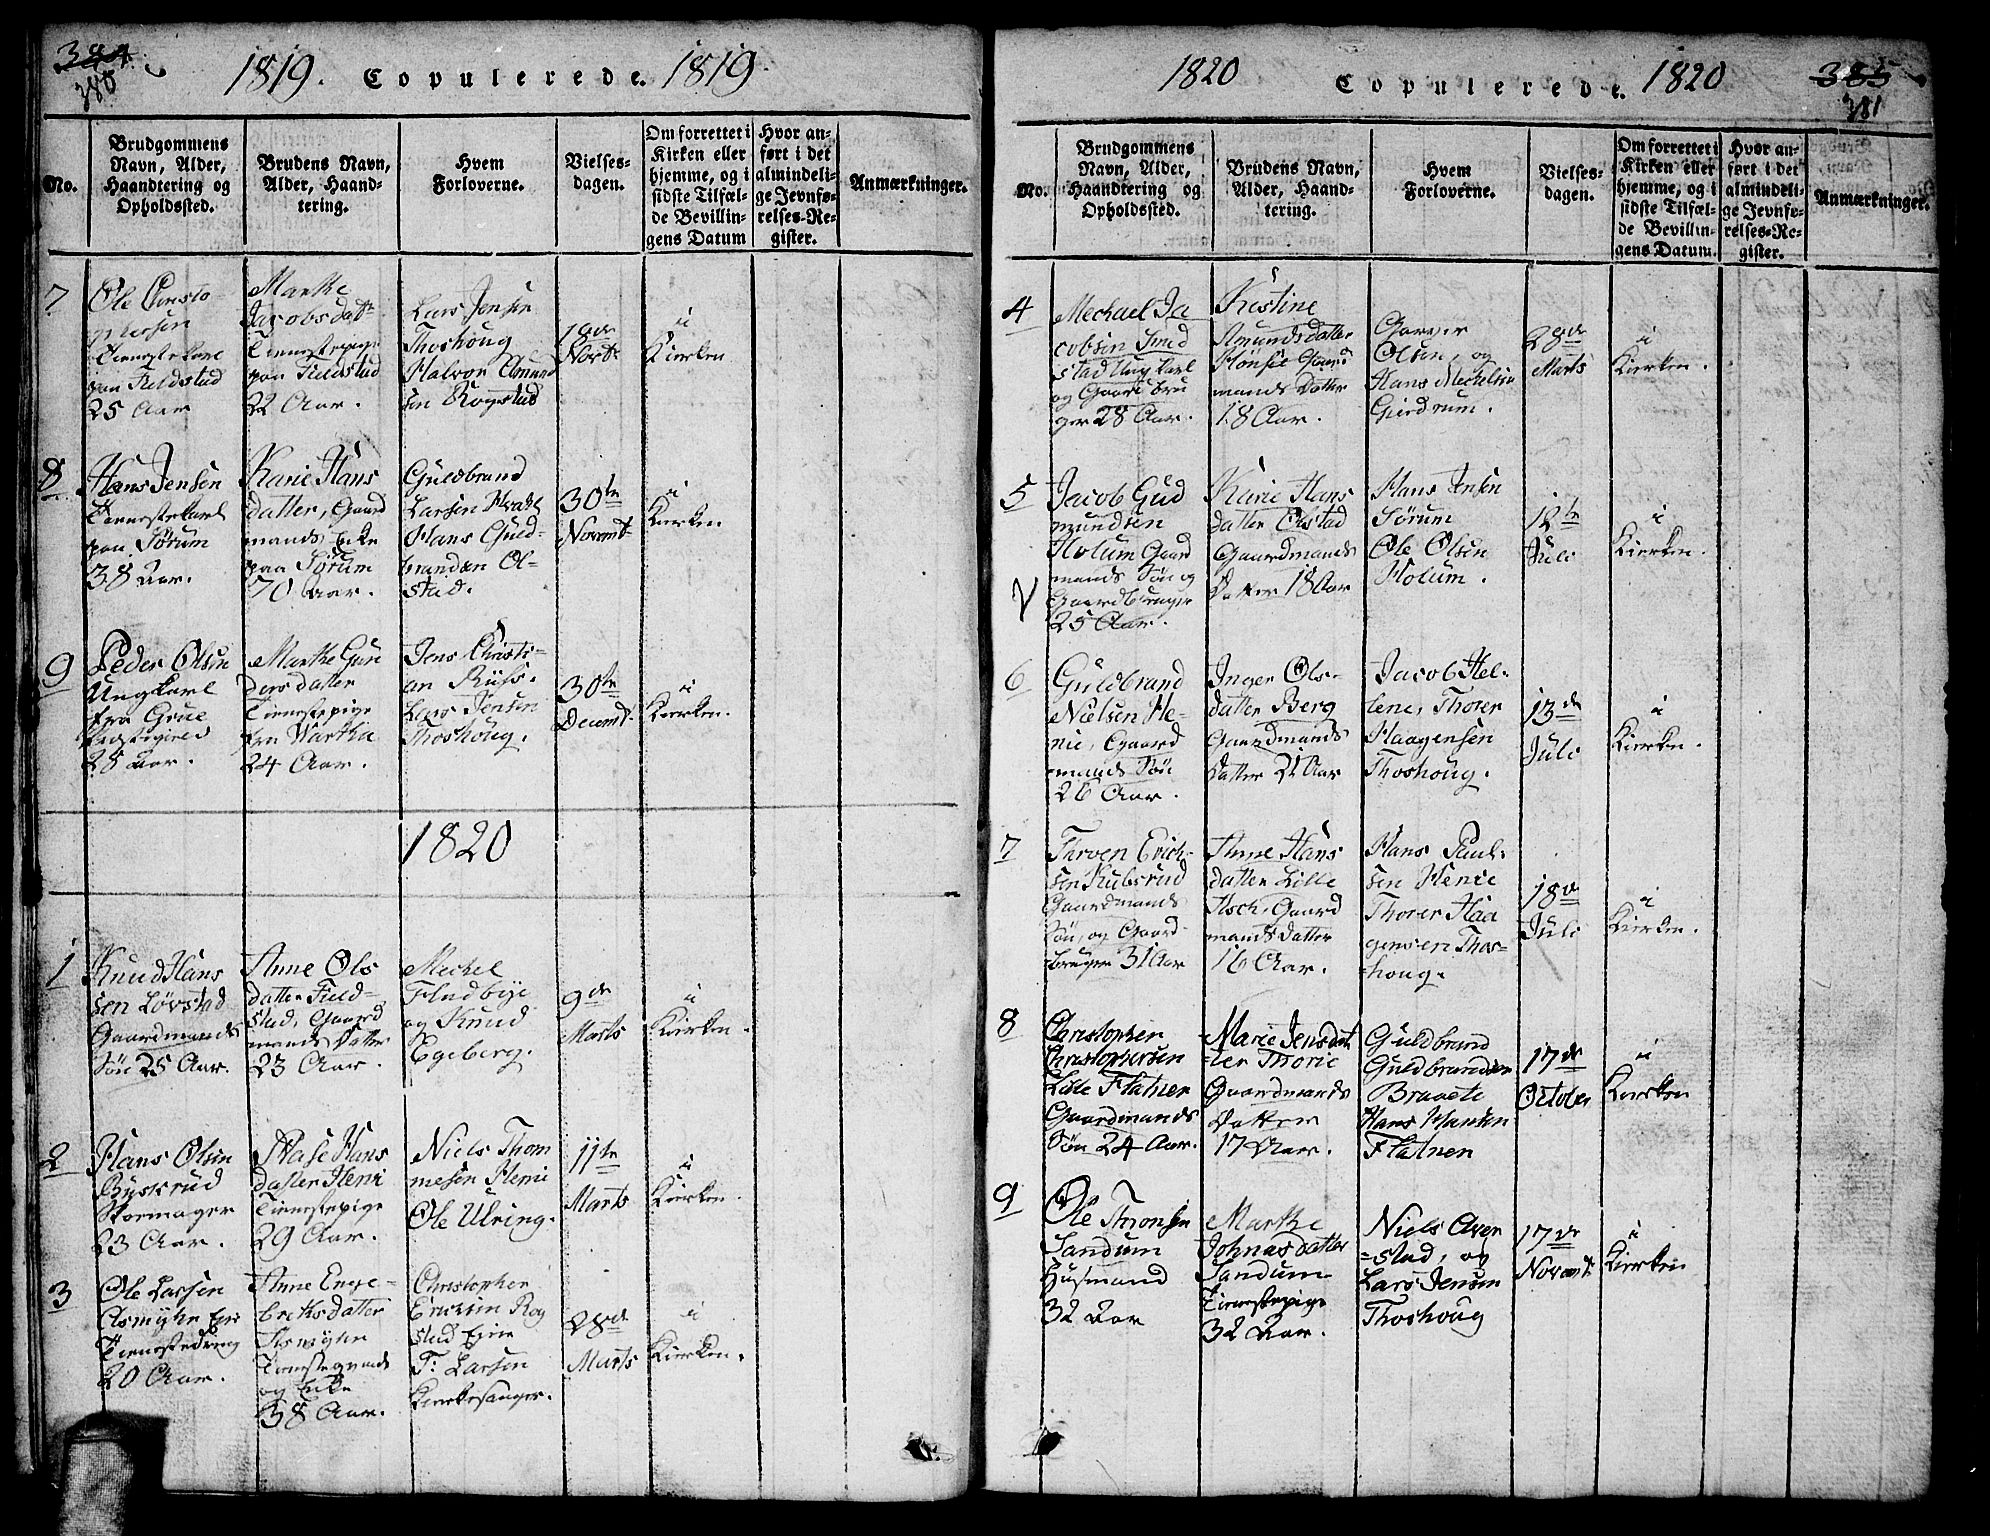 384.
380
1819. Copulerede. 1819.
No.
Brudgommens
Navn, Alder,
Haandtering og
Opholdssted.
Brudens Navn,
Alder, Haand-
tering.
Hvem
Forloverne.
Vielses-
dagen.
Om forrettet i
Kirken eller
hjemme, og i
sidste Tilfæl-
de Bevillin-
gens Datum
Hvor an-
ført i det
almindeli-
ge Jevnfø-
relses-Re-
gister.
Anmærkninger.
7
Ole Christo-
phersen
Tienestekarl
paa Fieldstad
25 Aar
Marthe
Jacobsdatr
Tienestepige
paa Fieldstad
22 Aar.
Lars Jensen
Thoshoug
Halvor Amund
sen Rogstad
18de
Novbr
i
Kierken
8
Hans Jensen
Tienestekarl
paa Sørum
38 Aar.
Karie Hans
datter, Gaard
mands Enke
paa Sørum
70 Aar.
Guldbrand
Larsen
Hans Guld-
brandsen Ol-
stad.
30te
Novembr
i
Kierken
9
Peder Olsen
Ungkarl
fra Grue
Præstegield
28 aar.
Marthe Gun
dersdatter
Tienestepige
fra
24 Aar.
Jens Christi-
an Riiss.
Lars Jensen
Thoshoug.
30te
Decembr.
i
Kierken.
1820
1
Knud Hans
sen Løvstad
Gaardmands
Søn 25 Aar.
Anne Ols
datter Field-
stad, Gaard
mands Datter
23 Aar.
Mechel
Fladbye
og Knud
Egeberg.
9de
Marts
i
Kierken.
2
Hans Olsen
Byskrud
Skoemager
23 Aar.
Aase Hans
datter Heni
Tienestepige
29 Aar.
Niels Thom
mesen Heni
Ole Ulring.
11te
Marts
i
Kierken.
3
Ole Larsen
Asmyhr Eje
Tienestedreng
20 Aar.
Anne Enge-
brektsdatter
Asmyhr
og Enke
38 Aar.
Christopher
Erichsen Rog
stad Ejie
T: Larsen
Kierkesanger.
28de
Marts
i
Kierken.
1820 Copulerede. 1820
385
381
No.
Brudgommens
Navn, Alder,
Haandtering og
Opholdssted.
Brudens Navn,
Alder, Haand-
tering.
Hvem
Forloverne.
Vielses-
dagen.
Om forrettet i
Kirken eller
hjemme, og i
sidste Tilfæl-
de Bevillin-
gens Datum.
Hvor an-
ført i det
almindeli-
ge Jevnfø-
relses-Re-
gister.
Anmærkninger.
4
Mechael Ja
cobsen Smed
stad Ung karl
og Gaard bru
ger 28 Aar.
Kistine
Amundsdatter
Hønsie Gaard
mands Datter
18 Aar.
Olsen, og
Hans Mechelsen
Gierdrum.
28de
Marts
i
Kierken.
5
Jacob Gud
mundsen
Holum Gaard
mands Søn og
Gaardbruger
25 Aar.
Karie Hans
datter Olstad
Gaardmands
Datter 18 Aar
Hans Jensen
Sørum
Ole Olsen
Holum.
12te
Juli
i
Kierken.
6
Guldbrand
Nielsen He-
nie, Gaard
mands Søn
26 Aar.
Inger Ols-
datter Berg
Gaardmands
Datter 21 Aar
Jacob Hel-
lene, Thorer
Haagensen
Thoshoug.
13de
Juli
i
Kierken.
7
Torven Erich-
sen Kulsrud
Gaardmands
Søn, og Gaard-
bruger 31 Aar
Anne Hans
datter Lille
Ask, Gaard
mands datter
16 Aar.
Hans Paul-
sen Henie
Thorer Haa
gensen Thos-
houg.
18de
Juli
i
Kierken.
8
Christopher
Christophersen
Lille Flatner
Gaardmands
Søn 24 Aar.
Marie Jensdat
ter Thorie
Gaardmands
Datter
17 Aar.
Guldbrand
Guldbrandsen
Braaete
Hans Hansen
Flatner
17de
October
i
Kierken
9
Ole Thronsen
Sandum
Husmand
32 Aar
Marthe
Johnasdatter
Sandum
Tienestepige
32 Aar.
Niels Aver
stad, og
Lars Jensen
Thoshoug
17de
Novembr
i
Kierken